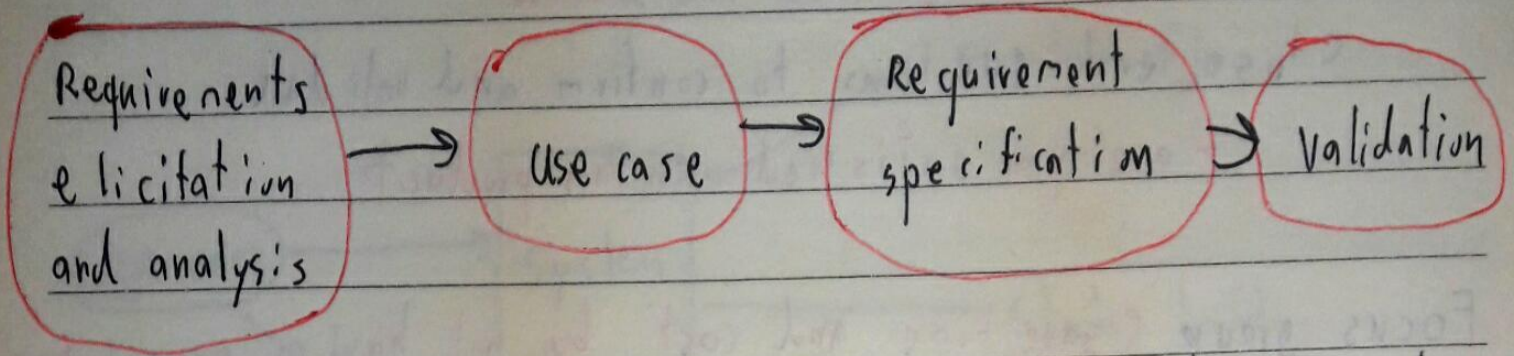 Requirements
elicitation
and analysis
use case
Requirement
specification
validation